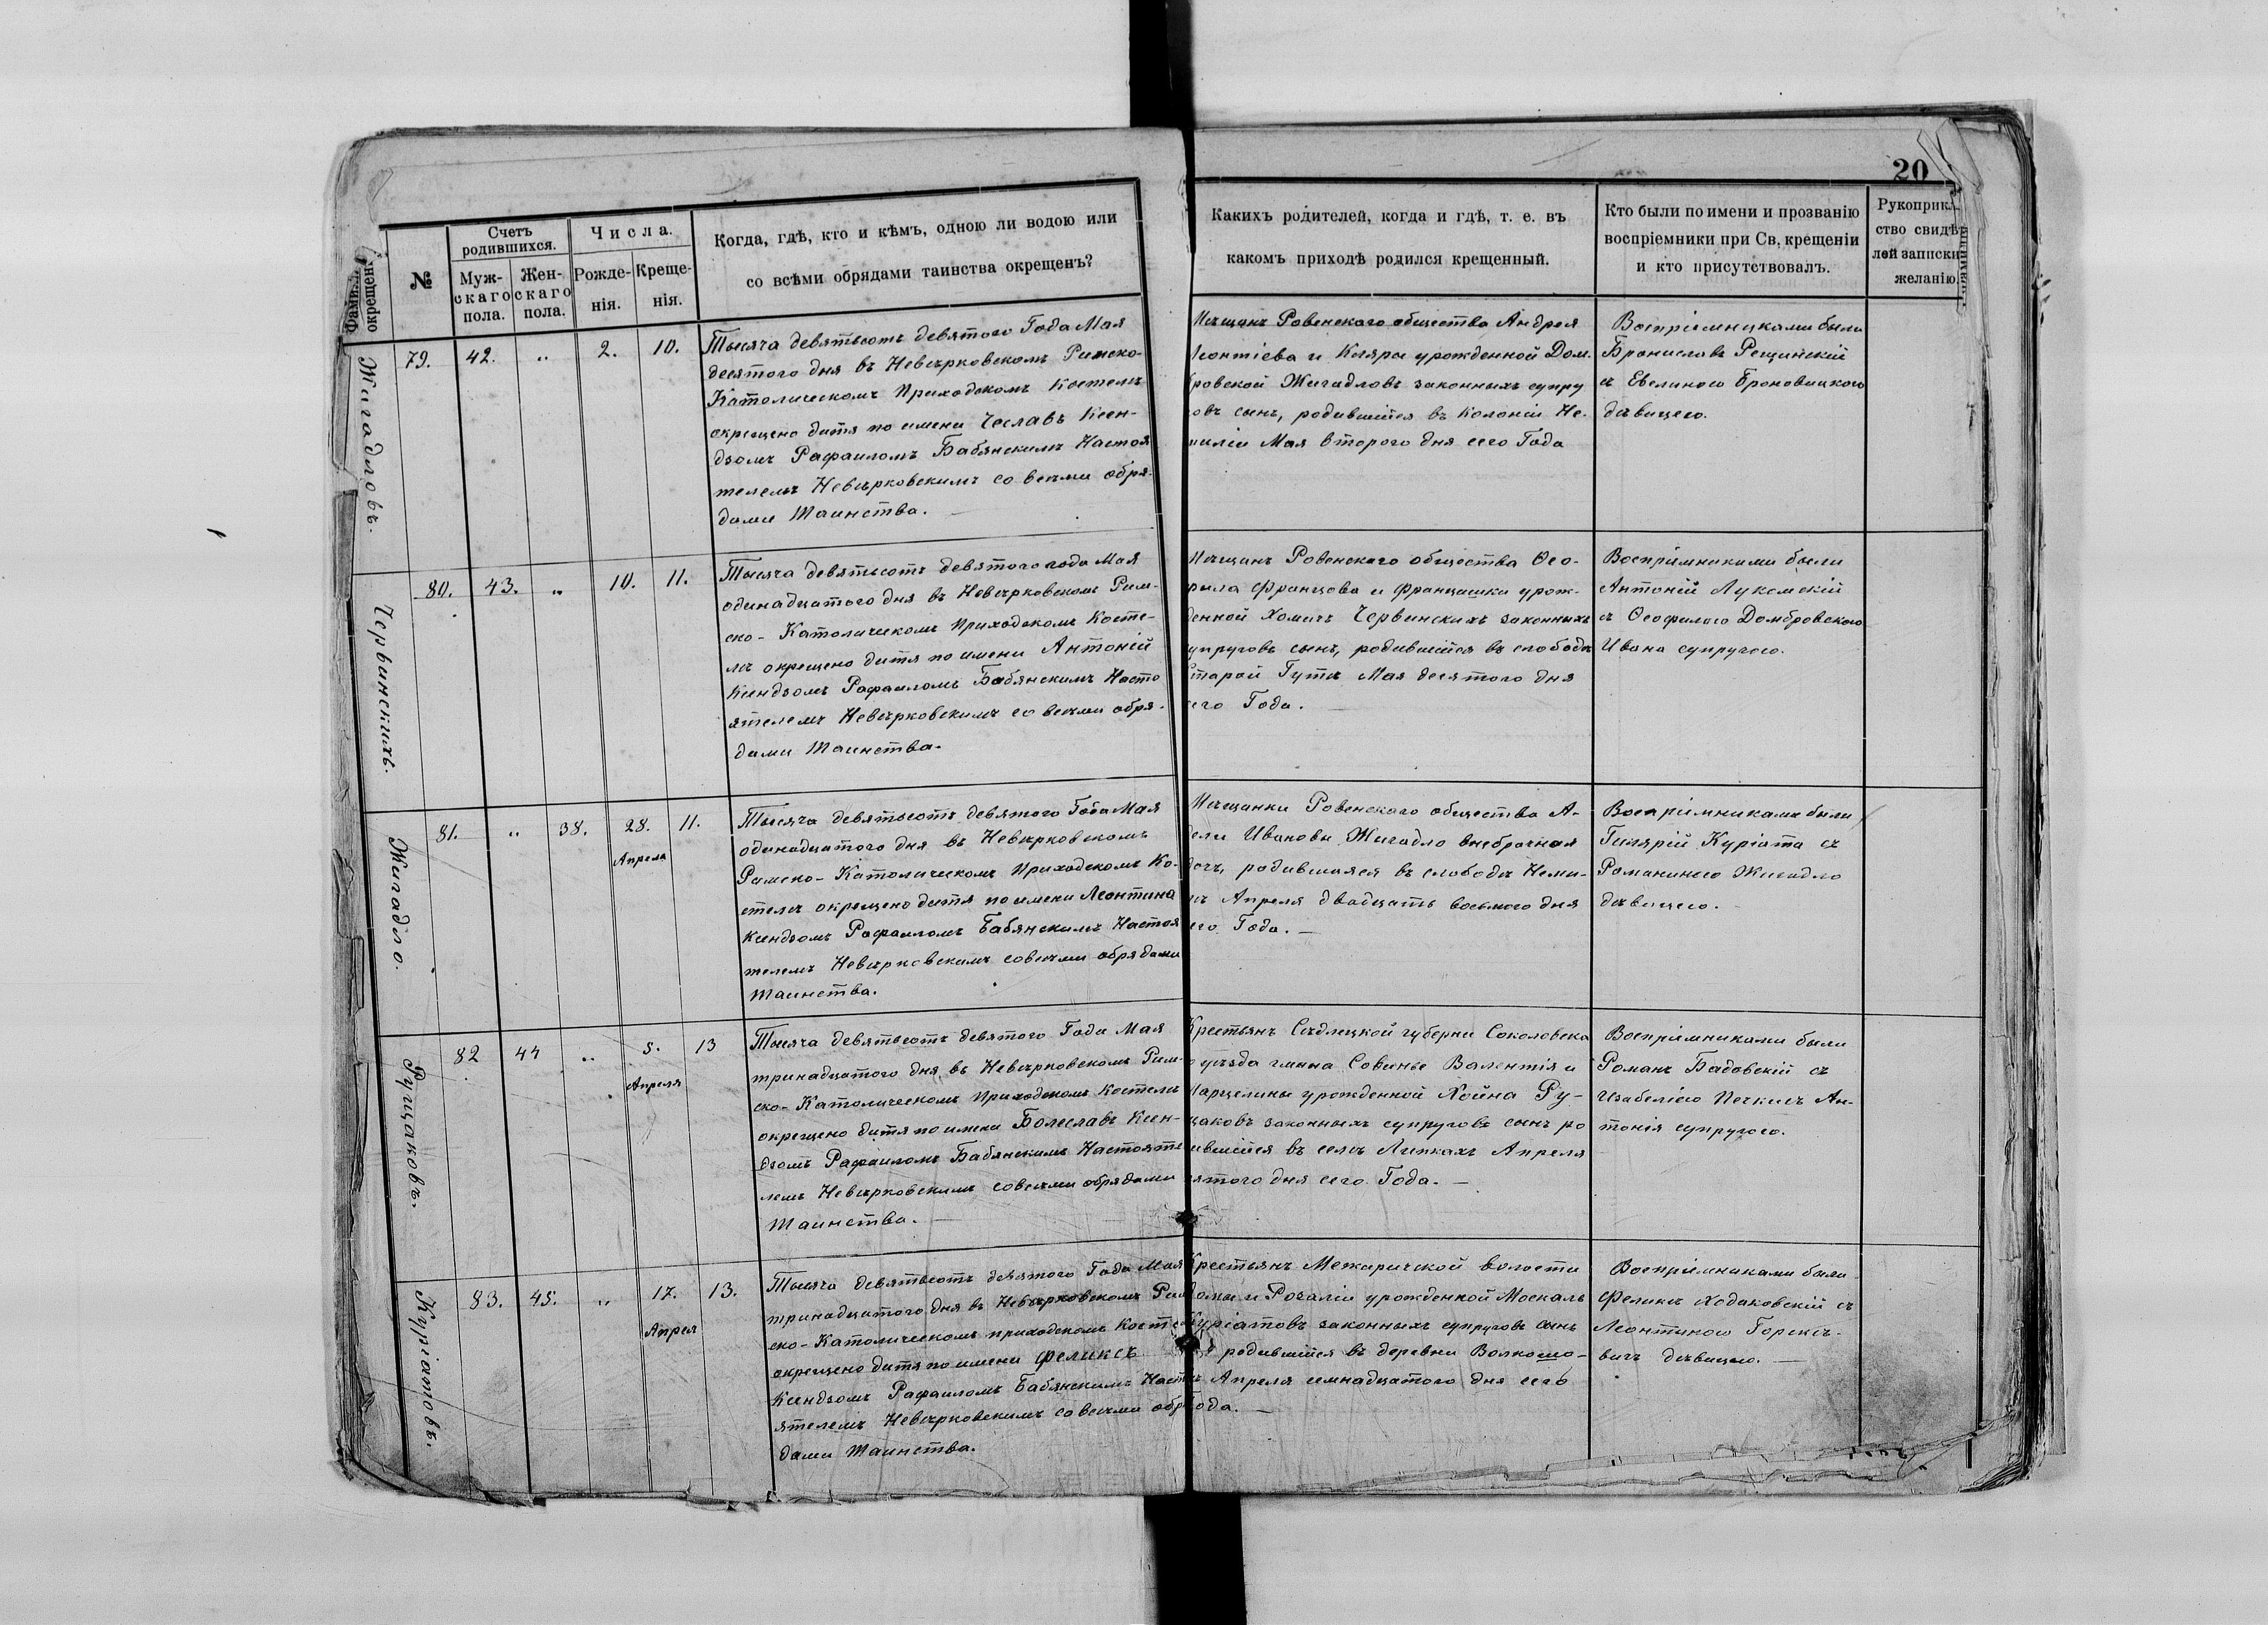 20
Фами
окрещен
№
Счетъ
родившихся.
Муж-
скаго
пола.
Жен-
скаго
пола.
Числа.
Рожде-
нія.
Креще-
нія.
Когда, гдѣ, кто и кѣмъ, одною ли водою или
со всѣми обрядами таинства окрещенъ?
Какихъ родителей, когда и гдѣ, т. е. въ
какомъ приходѣ родился крещенный.
Кто были по имени и прозванію
воспріемники при Св. крещеніи
и кто присутствовалъ.
Рукоприкл
ство свидѣ
лей записки
желанію.
Жигадловъ.
79. 42. „ 2. 10.
Тысяча девятьсотъ девятого Года Мая
десятого дня въ Невѣрковскомъ Римско-
Католическомъ Приходскомъ Костелѣ
окрещено дитя по имени Чеславъ Ксен-
дзомъ Рафаиломъ Бабянскимъ Настоя
телемъ Невѣрковскимъ со всѣми обря-
дами Таинства.
Мѣщанъ Ровенскаго общества Андрея
Леонтіева и Кляры урожденной Дом-
бровской Жигадловъ законныхъ супру
овъ сынъ, родившійся въ Колоніи Не-
миліи Мая второго дня сего Года
Воспріемниками были
Брониславъ Рещинскій
съ Евелиною Броновицкого
дѣвицею.
Червинскихъ.
80. 43. „ 10. 11.
Тысяча девятьсотъ девятого года Мая
одинадцатого дня въ Невѣрковскомъ Рим-
ско-Католическомъ Приходскомъ Косте-
лѣ окрещено дитя по имени Антоній
Ксендзомъ Рафаиломъ Бабянскимъ Насто
ятелемъ Невѣрковскимъ со всѣми обря-
дами Таинства.
Мѣщанъ Ровенскаго общества Ѳео-
фила Францова и Францишки урож-
денной Хомичъ Червинскихъ законныхъ
супруговъ сынъ, родившійся въ слободѣ
Старой Гутѣ Мая десятого дня
его Года.
Воспріемниками были
Антоній Лукомскій
съ Ѳеофилою Домбровского
Ивана супругою.
Жигадло.
81. „ 38. 28. 11.
Апреля
Тысяча девятьсотъ девятого Года Мая
одинадцатого дня въ Невѣрковскомъ
Римско-Католическомъ Приходскомъ Ко-
стелѣ окрещено дитя по имени Леонтина
Ксендзомъ Рафаиломъ Бабянскимъ Настоя
телемъ Невѣрковскимъ со всѣми обрядами
Таинства.
Мѣщанки Ровенского общества А-
дели Ивановы Жигадло внебрачная
дочь, родившаяся въ слободѣ Неми-
лѣ Апреля двадцать восьмого дня
его Года.
Воспріемниками были
Гилярій Куріата съ
Романиною Жигадло
дѣвицею.
Руцаковъ.
82 44 „ 5. 13
Апреля
Тысяча девятьсотъ девятого Года Мая
тринадцатого дня въ Невѣрковскомъ Рим-
ско-Католическомъ Приходскомъ Костелѣ
окрещено дитя по имени Болеславъ Ксен-
дзомъ Рафаиломъ Бабянскимъ Настояте
лемъ Невѣрковскимъ со всѣми обрядами
Таинства.
Крестьянъ Сѣдлецкой губерни Соколовска
уѣзда гмина Валентія и
Марцелины урожденной Хойна Ру-
цаковъ законныхъ супруговъ сынъ ро
дившійся въ селѣ Липкахъ Апреля
пятого дня сего Года.
Воспріемниками были
Романъ Бадовскій съ
Изабеллою Ан-
тонія супругою.
Куріатовъ.
83. 45. „ 17. 13.
Апреля
Тысяча девятьсотъ девятого Года Мая
тринадцатого дня въ Невѣрковскомъ Рим
ско-Католическомъ приходскомъ Косте
окрещено дитя по имени Феликсъ
Ксендзомъ Рафаиломъ Бабянскимъ Насто
ятелемъ Невѣрковскимъ со всѣми обр
дами Таинства.
Крестьянъ Межиричской волости
и Розаліи урожденной Москаль
Куріатовъ законныхъ супруговъ сынъ
родившійся въ деревни Волкошо-
Апреля семнадцатого дня сего
Года.
Воспріемниками были
Феликсъ Ходаковскій съ
Леонтиною Горскѣ-
вичъ дѣвицею.